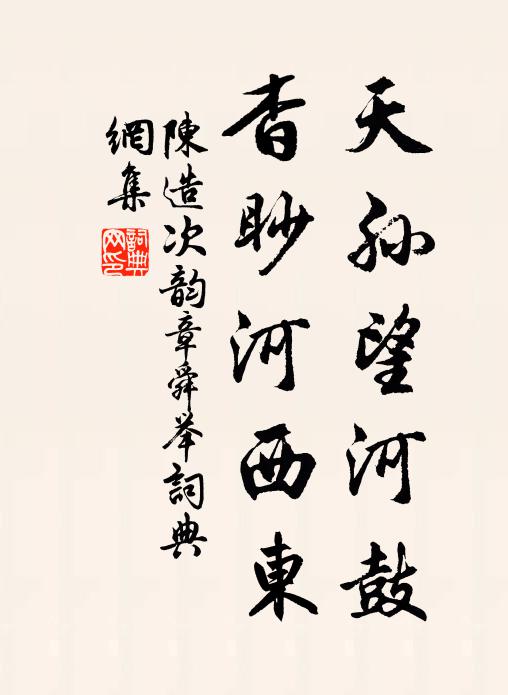 天孫望河鼓
杳眇河西東
陳造次韵章舜举詞典
網集
詞典网印